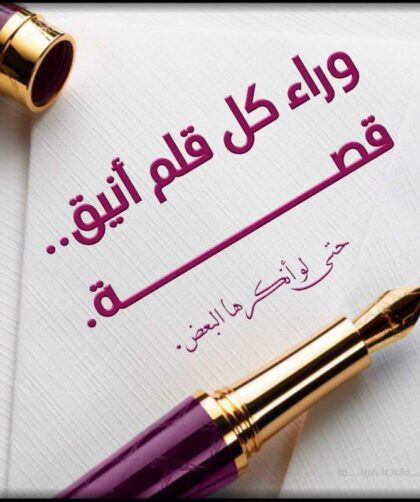 وراء كل قلم أنيق..
قصــــــــــة.
حتى لو أنكرها البعض.